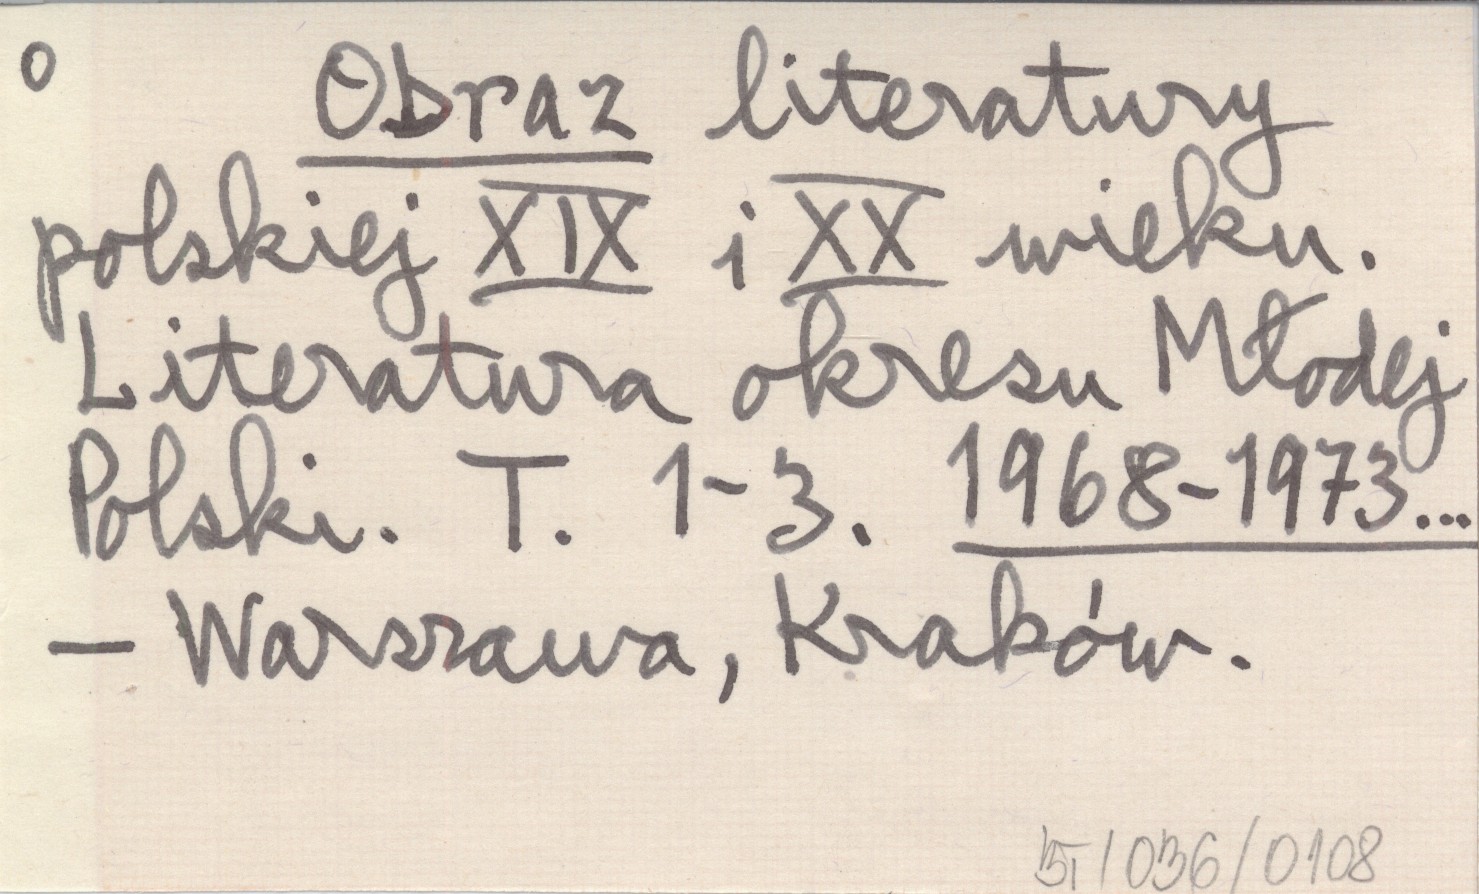 o Obraz literatury
polskiej XIX i XX wieku.
Literatura okresu Młodej
Polski. T. 1-3. 1968-1973...
— Warszawa, Kraków.
/036/0108